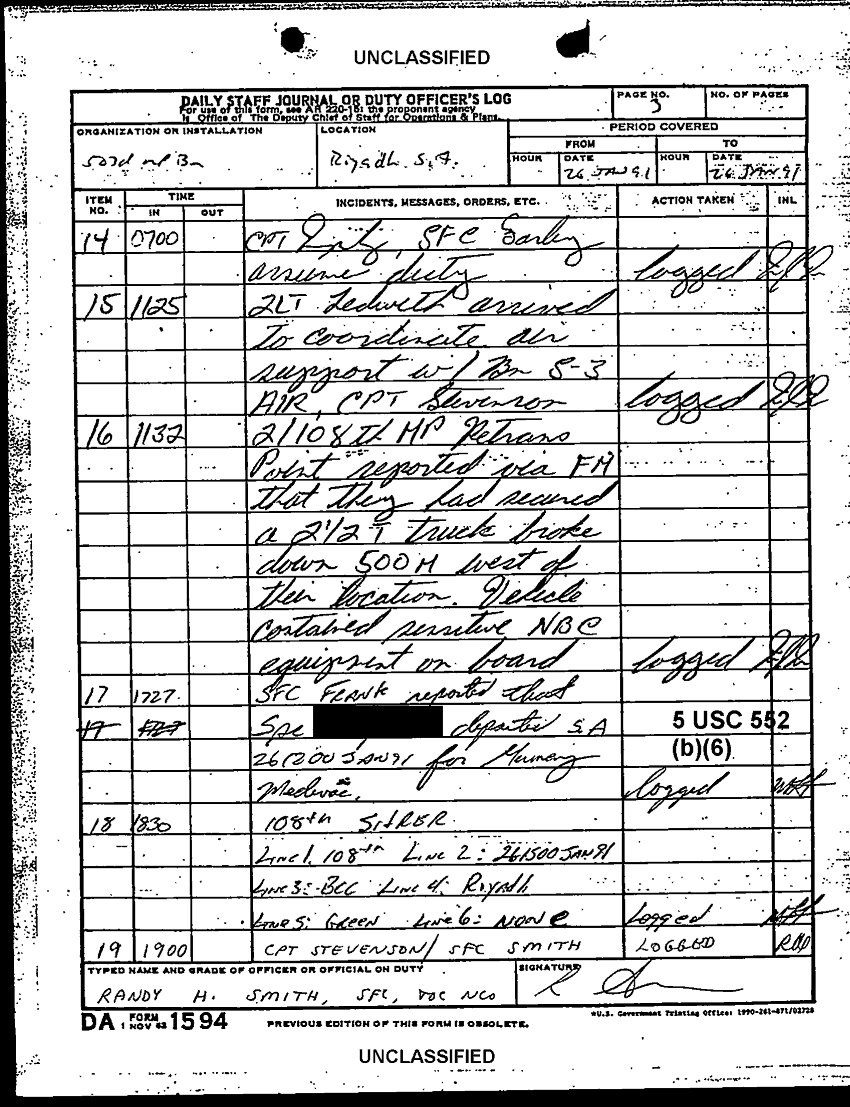 UNCLASSIFIED
DAILY STAFF JOURNAL OR DUTY OFFICER'S LOG
For use of this form, see AR 220-151 the proponent agency
is Office of The Deputy Chief of Staff for Operations & Plans.
PAGE NO.
3
NO. OF PAGES
ORGANIZATION OR INSTALLATION
503d MP Bn
LOCATION
Riyadh. S.A.
PERIOD COVERED
FROM
TO
HOUR
DATE
26 JAN 91
HOUR
DATE
26 JAN 91
ITEM NO.
TIME
IN
OUT
INCIDENTS, MESSAGES, ORDERS, ETC.
ACTION TAKEN
INL
14 0700 CPT SFC
assume duty logged
15 1125 2LT Ledwith arrived
to coordinate air
support w/ Bn S-3
AIR, CPT Stevenson logged
16 1132 2/108th MP Retrans
Point reported via FM
that they had secured
a 2 1/2 T truck broke
down 500M west of
their location. Vehicle
contained sensitive NBC
equipment on board logged
17 1727 SFC FRANK reported that
17 1727 Spc departed S.A
5 USC 552
(b)(6)
261200 JAN 91 for Germany
Medevac. logged
18 1830 108th SITREP
Line 1. 108th Line 2: 261500 JAN 91
Line 3: BCC Line 4: Riyadh
Line 5: GREEN Line 6: NONE Logged
19 1900 CPT STEVENSON/ SFC SMITH LOGGED
TYPED NAME AND GRADE OF OFFICER OR OFFICIAL ON DUTY
RANDY H. SMITH, SFC, TOC NCO
SIGNATURE
DA FORM 1 NOV 62 1594
PREVIOUS EDITION OF THIS FORM IS OBSOLETE.
*U.S. Government Printing Office: 1990-261-871/02728
UNCLASSIFIED